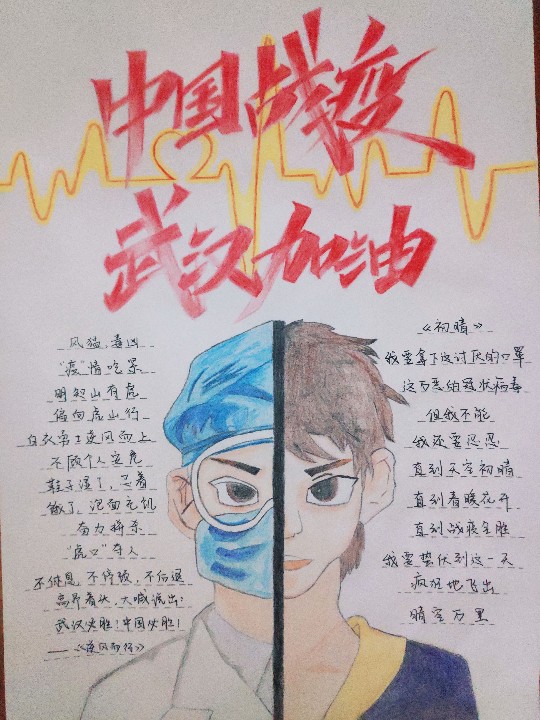 中国战疫
武汉加油
风猛,毒凶
“疫”情吃紧
明知山有虎
偏向虎山行
白衣勇士逆风而上
不顾个人安危
鞋子湿了,忍着
散了,泡面充饥
奋力拼杀
“虎口”夺人
不休息,不停歇,不后退
高昂着头,大喊说出:
武汉必胜!中国必胜!
——《逆风而行》
《初晴》
我要拿下这讨厌的口罩
这万恶的冠状病毒
但我不能
我还要忍忍
直到天空初晴
直到春暖花开
直到战疫全胜
我要蛰伏到这一天
疯狂地飞出
晴空万里